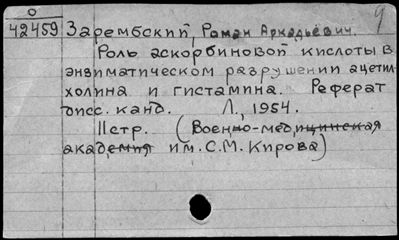 О
42459 Зарембский, Роман Аркадьевич. 9
Роль аскорбиновой кислоты в
энзиматическом разрушении ацетил
холина и гистамина. Реферат
дисс. канд. Л., 1954.
11стр. (Военно-медицинская
академия им. С.М. Кирова)